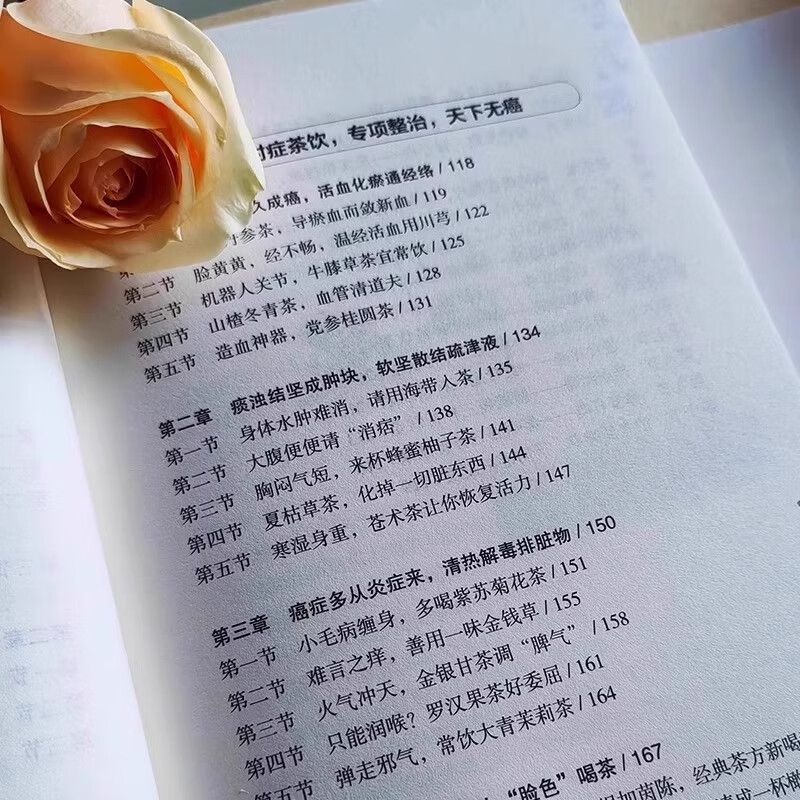 对症茶饮，专项整治，天下无癌
久成癌，活血化瘀通经络 / 118
丹参茶，导瘀血而敛新血 / 119
第二节 脸黄黄，经不畅，温经活血用川芎 / 122
第三节 机器人关节，牛膝草茶宜常饮 / 125
第四节 山楂冬青茶，血管清道夫 / 128
第五节 造血神器，党参桂圆茶 / 131
第二章 痰浊结坚成肿块，软坚散结疏津液 / 134
第一节 身体水肿难消，请用海带入茶 / 135
第二节 大腹便便请“消痞” / 138
第三节 胸闷气短，来杯蜂蜜柚子茶 / 141
第四节 夏枯草茶，化掉一切脏东西 / 144
第五节 寒湿身重，苍术茶让你恢复活力 / 147
第三章 癌症多从炎症来，清热解毒排脏物 / 150
第一节 小毛病缠身，多喝紫苏菊花茶 / 151
第二节 难言之痒，善用一味金钱草 / 155
第三节 火气冲天，金银甘茶调“脾气” / 158
第四节 只能润喉？罗汉果茶好委屈 / 161
第五节 弹走邪气，常饮大青茉莉茶 / 164
“脸色”喝茶 / 167
加茵陈，经典茶方新喝
成一杯橄